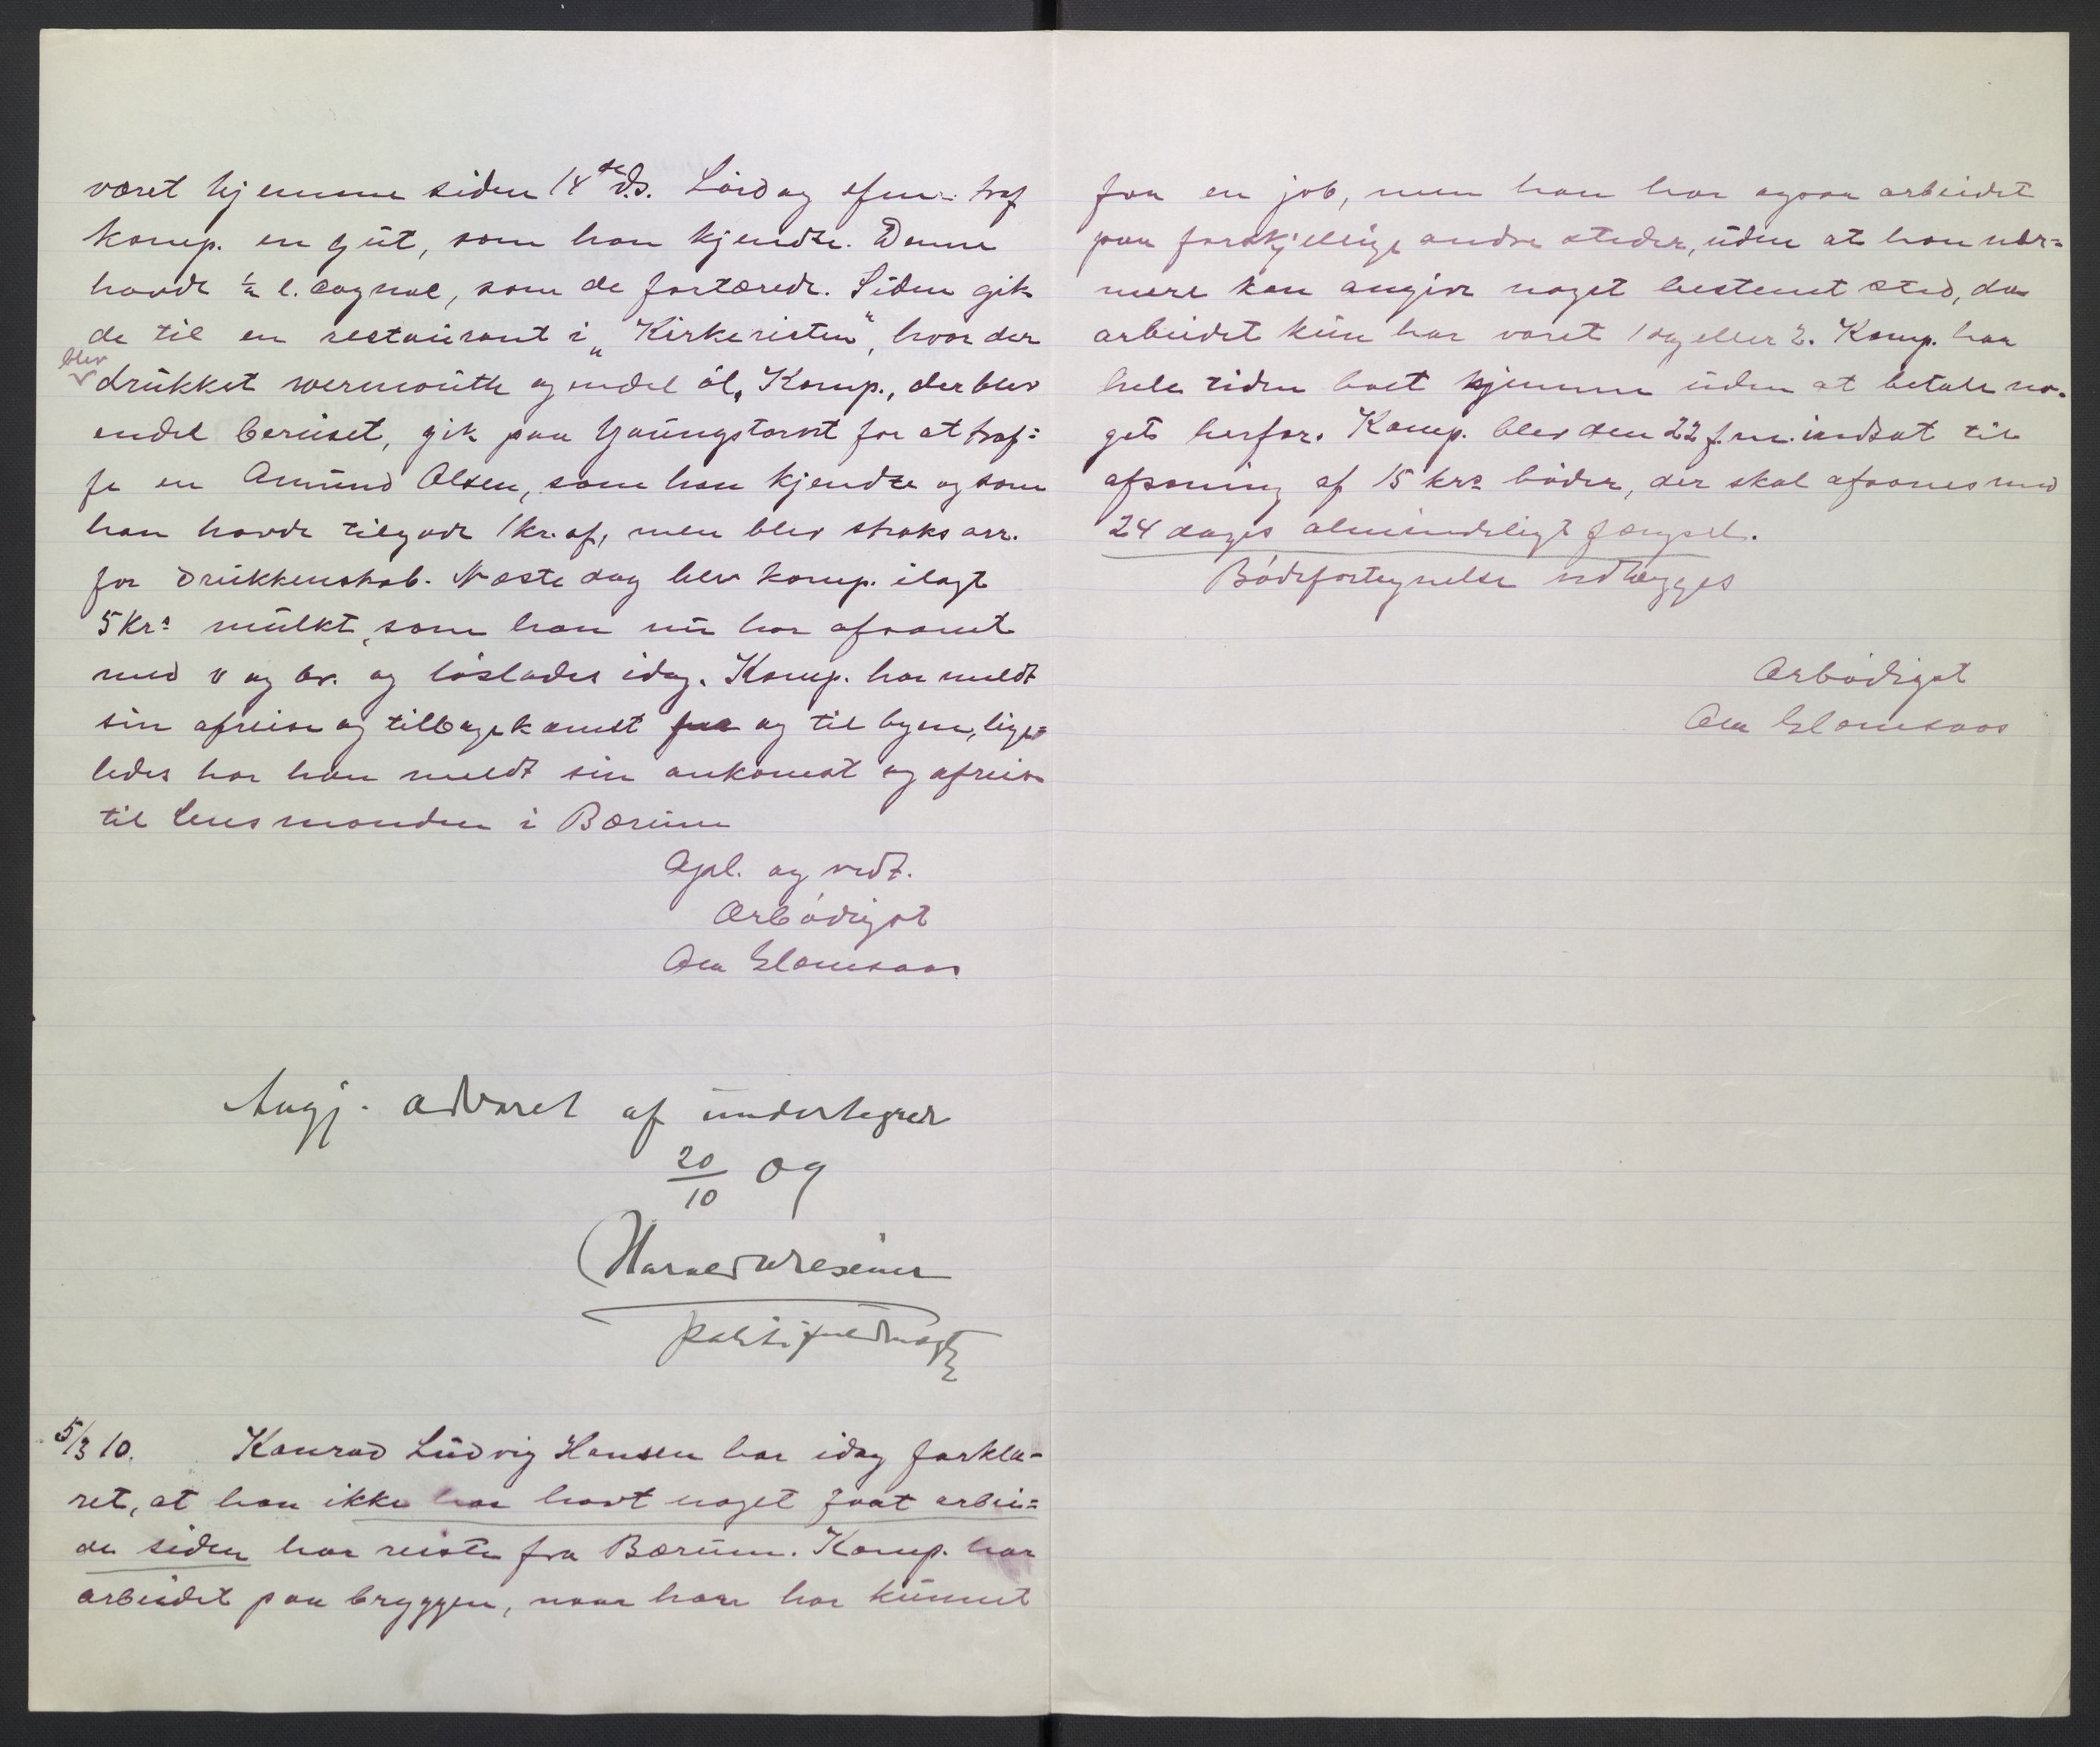 været hjemme siden 14de ds. Lördag efm. traf
komp. en gut, som han kjendte. Denne
havde ½ l. cognac, som de fortærede. Siden gik
de til en restaurant i „Kirkeristen“, hvor der
blev
drukket wermouth og endel öl. Komp., der blev
endel beruset, gik paa Youngstorvet for at traf=
fe en Amund Olsen, som han kjendte og som
han havde tilgode 1 kr. af, men blev straks arr.
for drukkenskab. Næste dag blev komp. ilagt
5 krs mulkt, som han nu har afsonet
med v og br. og löslades idag. Komp. har meldt
sin afreise og tilbagekomst fra og til byen, lige=
ledes har han meldt sin ankomst og afreise
til lensmanden i Bærum
Opl. og vedt.
Ærbödigst
Ola Glomsaas
Angj. advaret af undertegnede
20/10 09
Harald
politifuldmægtig
5/3 10. Konrad Ludvig Hansen har idag forkla-
ret, at han ikke har havt noget fast arbei=
de siden han reiste fra Bærum. Komp. har
arbeidet paa bryggen, naar han har kunnet
faa en job, men han har ogsaa arbeidet
paa forskjellige andre steder, uden at han nær=
mere kan angive noget bestemt sted, da
arbeidet kun har varet 1 dag eller 2. Komp. har
hele tiden boet hjemme uden at betale no-
get herfor. Komp. blev den 22 f.m. indsat til
afsoning af 15 krs böder, der skal afsones med
24 dages almindeligt fængsel.
Bödefortegnelse vedlægges
Ærbödigst
Ola Glomsaas